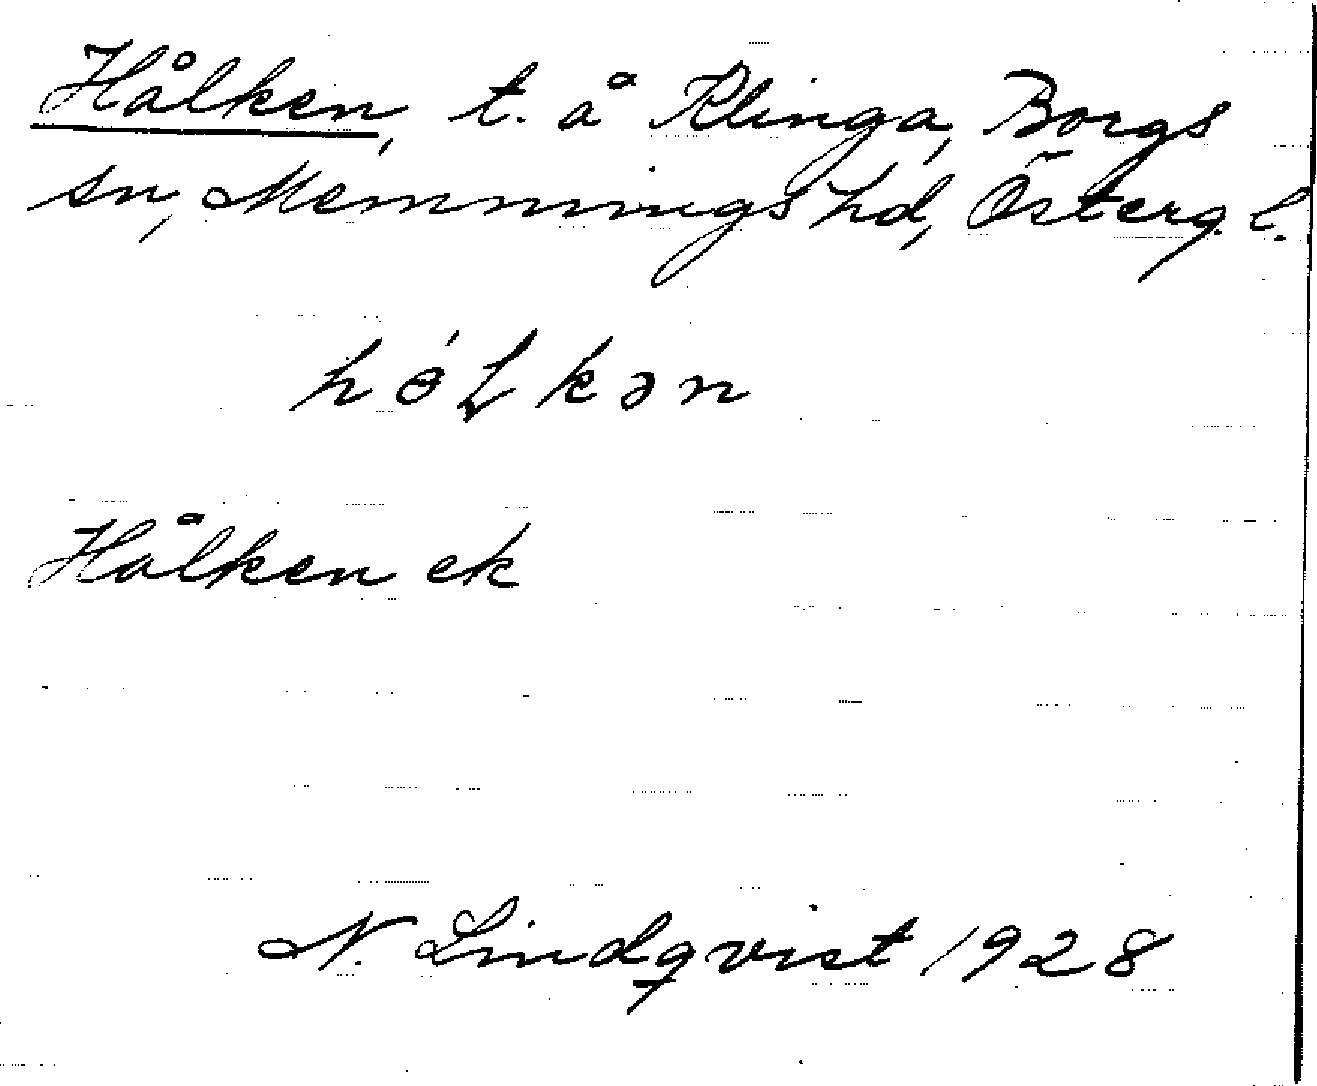 Hålken, t. å Klinga, Borgs
sn, Memmings hd, Österg. l.
hɵ́Lkən
Hålken ek
N. Lindqvist 1928